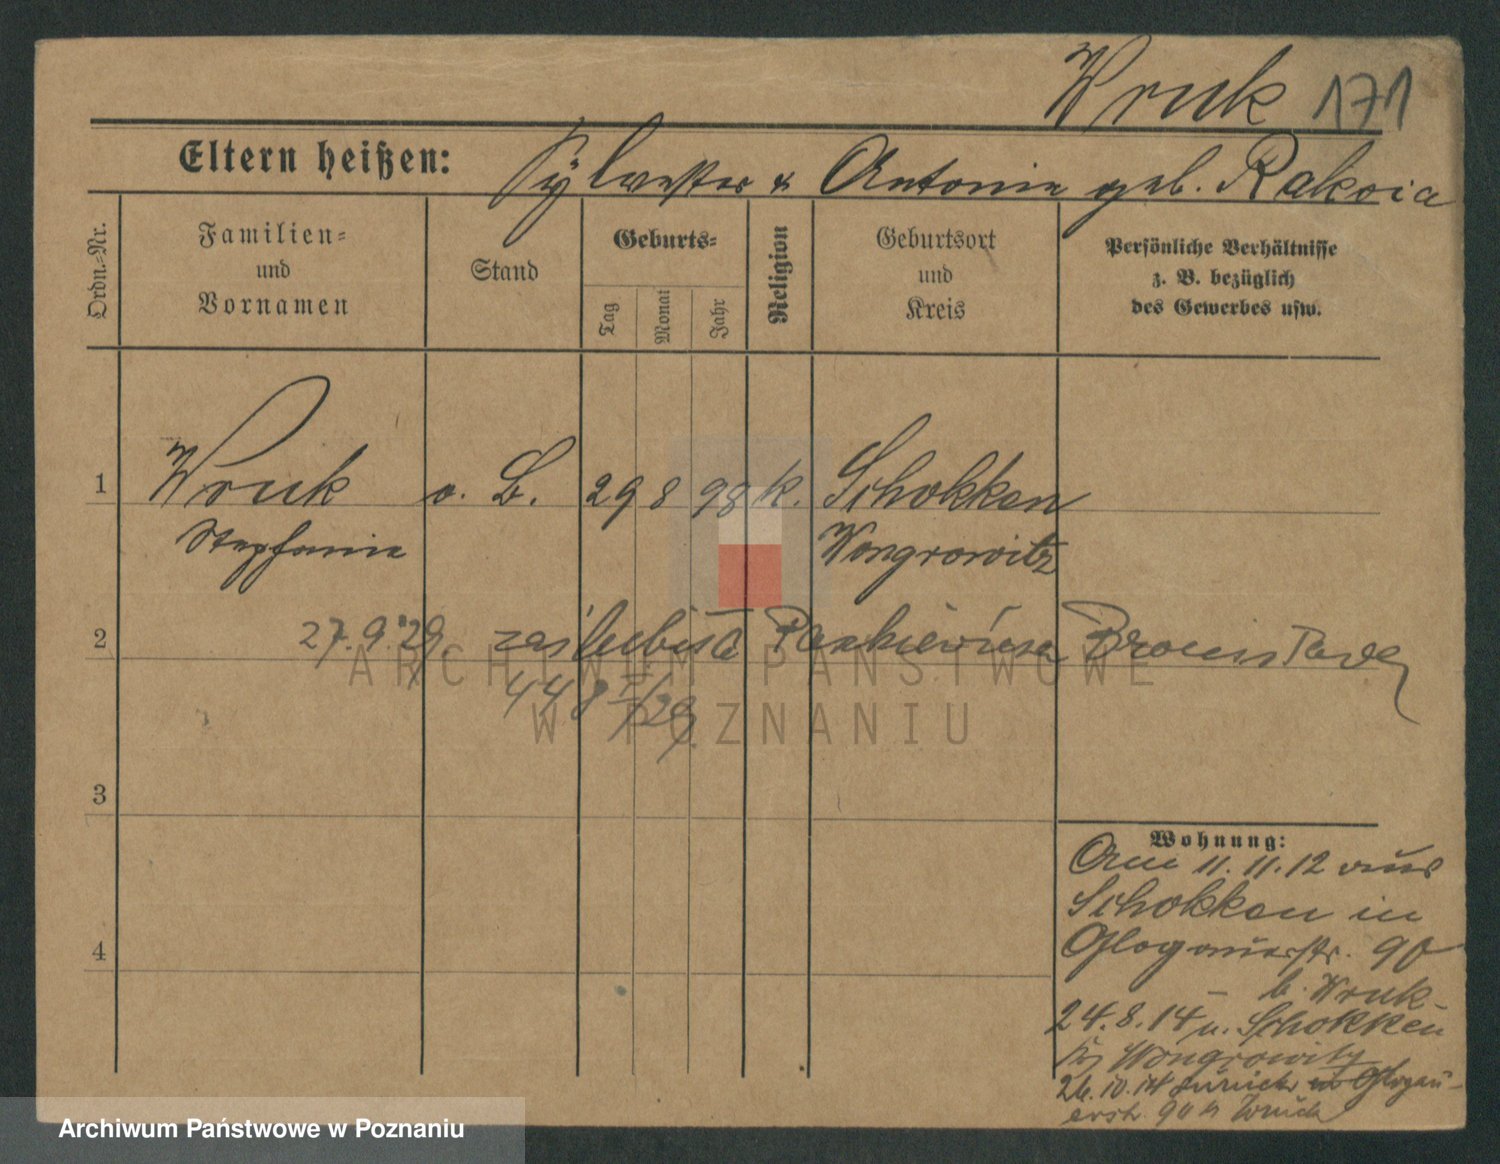 Wruk 171
Eltern heißen: Sylwester & Antonie geb. Rakoia
Ordn.-Nr.
Familien-
und
Vornamen
Stand
Geburts-
Tag
Monat
Jahr
Religion
Geburtsort
und
Kreis
Persönliche Verhältnisse
z. B. bezüglich
des Gewerbes usw.
1 Wruk o. B. 29 8 98 k. Schokken
Stepfanie Wongrowitz
2 27.9.29.
448
3
4
Wohnung:
Am 11.11.12 aus
Schokken in
Glogauerstr. 90
b. Wruk
24.8.14 n. Schokken
Wongrowitz
26.10.14 zurück Glogau-
erstr. 90 b Wruck
ARCHIWUM PAŃSTWOWE
W POZNANIU
Archiwum Państwowe w Poznaniu